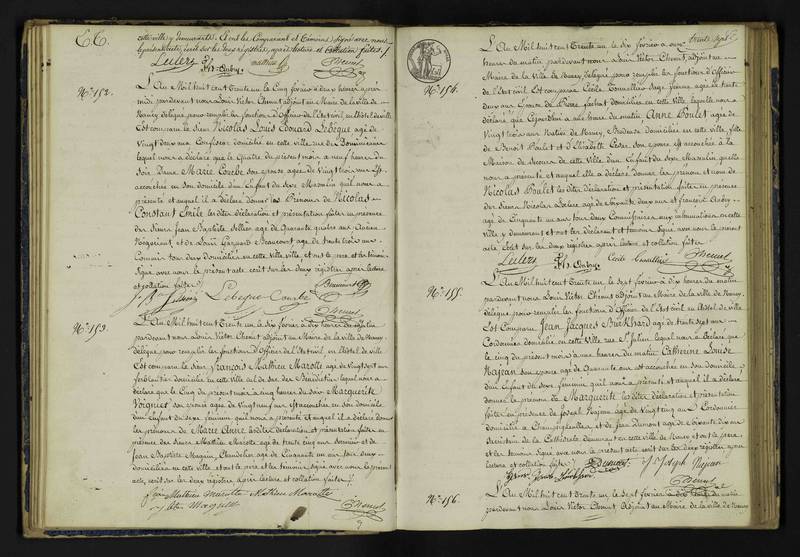 cette ville y demeurants; et ont les Comparant et témoins, signé avec nous
le présent acte, écrit sur les deux registres, après lecture et collation faites./.
Leclerc
N.° 152.
L'An Mil huit cent trente un le Cinq février à deux heures après
midi, pardevant nous Louis Victor Chenut adjoint au Maire de la ville de
Nancy délégué pour remplir les fonctions d'Officier de l'Etat civil en l'hôtel de ville
Est comparu le sieur Nicolas Louis Edouard Lebègue agé de
Vingt deux ans Confiseur domicilié en cette ville, rue des Dominicains
lequel nous a déclaré que le quatre du présent mois à neuf heures du
soir Dame Marie son épouse agée de Vingt trois ans Est
accouchée en son domicile d'un Enfant du sexe Masculin qu'il nous a
présenté et auquel il a déclaré donner les Prénoms de Nicolas
Constant Emile les dites déclaration et présentation faites en présence
des sieurs Jean Baptiste Sellier agé de Quarante quatre ans Ancien
Négociant et de Louis Beaucourt agé de trente trois ans
domiciliés en cette ville, et ont les père et témoins
signé avec nous le présent acte, écrit sur les deux registres après lecture
et collation faites
Lebègue
N.° 153.
L'An Mil huit cent trente un le six février à dix heures du matin
pardevant nous Louis Victor Chenut adjoint au Maire de la ville de Nancy
délégué pour remplir les fonctions d'Officier de l'Etat civil, en l'hôtel de ville
Est comparu le sieur François Mathieu Marotte agé de Vingt sept ans
ferblantier domicilié en cette ville lequel nous a
déclaré que le Cinq du présent mois à cinq heures du soir Marguerite
son épouse agée de Vingt neuf ans Est accouchée en son domicile
d'un Enfant du sexe féminin qu'il nous a présenté et auquel il a déclaré donner
les prénoms de Marie Anne les dites déclaration et présentation faites en
présence des sieurs Mathieu Marotte agé de trente cinq ans Serrurier et de
Jean Baptiste Magnien Chandelier agé de Cinquante un ans tous deux
domiciliés en cette ville, et ont les père et les témoins signé avec nous le présent
acte, écrit sur les deux registres, après lecture et collation faites ./.
Mathieu Marotte
N.° 154.
L'An Mil huit cent trente un le six février à onze
heures du matin pardevant nous Louis Victor Chenut adjoint au
Maire de la Ville de Nancy délégué pour remplir les fonctions d'Officier
de l'Etat civil Est comparue Cécile Sage femme agée de trente
deux ans domiciliée en cette Ville, laquelle nous a
déclaré que Cejourd'hui à une heure du matin Anne Poulet agée de
Vingt trois ans Native de Nancy, Brodeuse domiciliée en cette ville, fille
de Benoit Poulet et d'Elisabeth son épouse est accouchée à la
Maison de Secours de cette Ville d'un Enfant du sexe Masculin qu'elle
nous a présenté et auquel elle a déclaré donner les prénom et nom de
Nicolas Poulet les dites déclaration et présentation faites en présence
des sieurs Nicolas Leclerc agé de Soixante deux ans et François Aubry
agé de Cinquante un ans tous deux Commissaires aux inhumations en cette
ville y demeurant et ont les déclarant et témoins signé avec nous le présent
acte écrit sur les deux registres après lecture et collation faites
Leclerc
N.° 155.
L'An Mil huit cent trente un le sept février à dix heures du matin
pardevant nous Louis Victor Chenut adjoint au Maire de la ville de Nancy,
délégué pour remplir les fonctions d'Officier de l'Etat civil en l'hôtel de ville
Est Comparu Jean Jacques Burkhard agé de trente sept ans
Cordonnier domicilié en cette Ville rue St Julien lequel nous a déclaré que
le cinq du présent mois à une heure du matin Catherine Louise
Najean son épouse agée de Quarante ans est accouchée en son domicile
d'un Enfant du sexe féminin qu'il nous a présenté et auquel il a déclaré
donner le prénom de Marguerite les dites déclaration et présentation
faites en présence de Joseph Najean agé de Vingt cinq ans Cordonnier
domicilié à Champigneulles et de Jean agé de Soixante dix ans
Sacristain de la Cathédrale demeurant en cette ville de Nancy et ont le père
et les témoins signé avec nous le présent acte, écrit sur les deux registres après
lecture et collation faites
Joseph Najean
N.° 156.
L'An Mil huit cent trente un le Sept février à dix heures du matin
pardevant nous Louis Victor Chenut Adjoint au Maire de la ville de Nancy